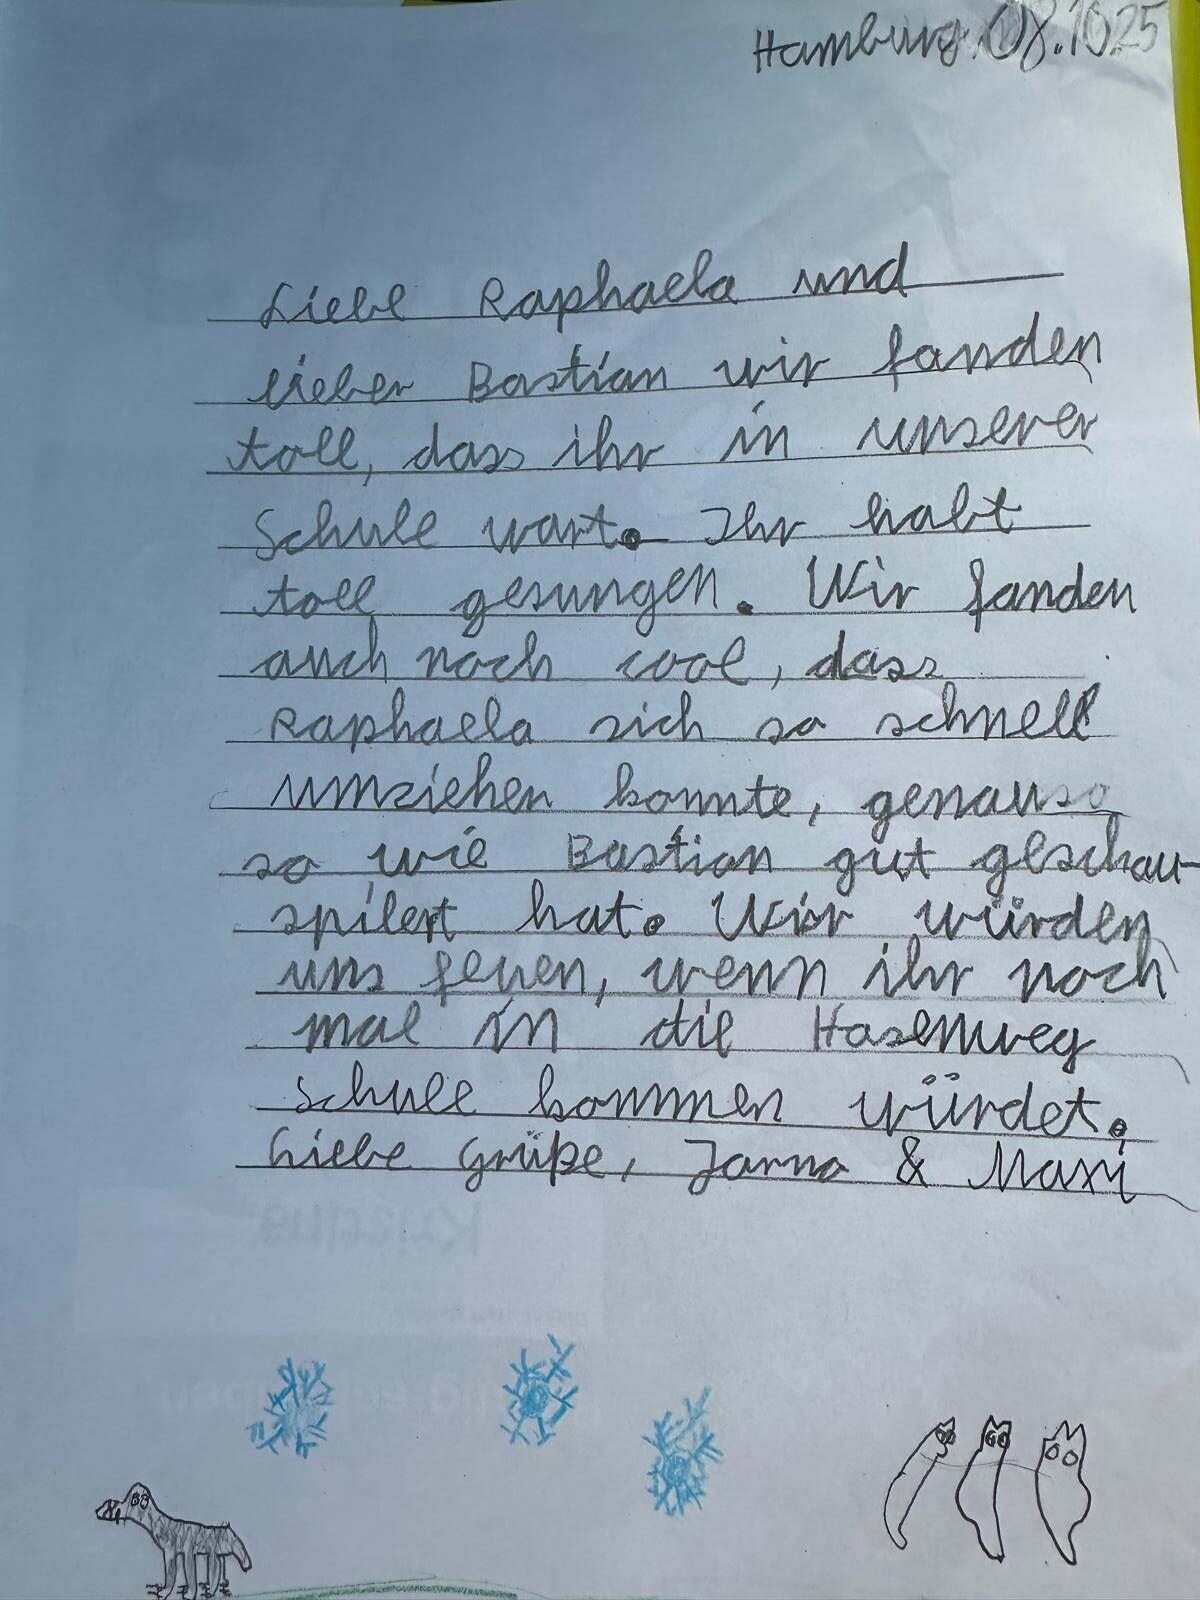 Hamburg, 08.10.25
Liebe Raphaela und
lieber Bastian wir fanden
toll, dass ihr in unserer
Schule wart. Ihr habt
toll gesungen. Wir fanden
auch noch cool, dass
Raphaela sich so schnell
umziehen konnte, genauso
so wie Bastian gut geschau-
spilert hat. Wir würden
uns feuen, wenn ihr noch
mal in die Hasenweg
Schule kommen würdet.
Liebe Grüße, Janna & Maxi